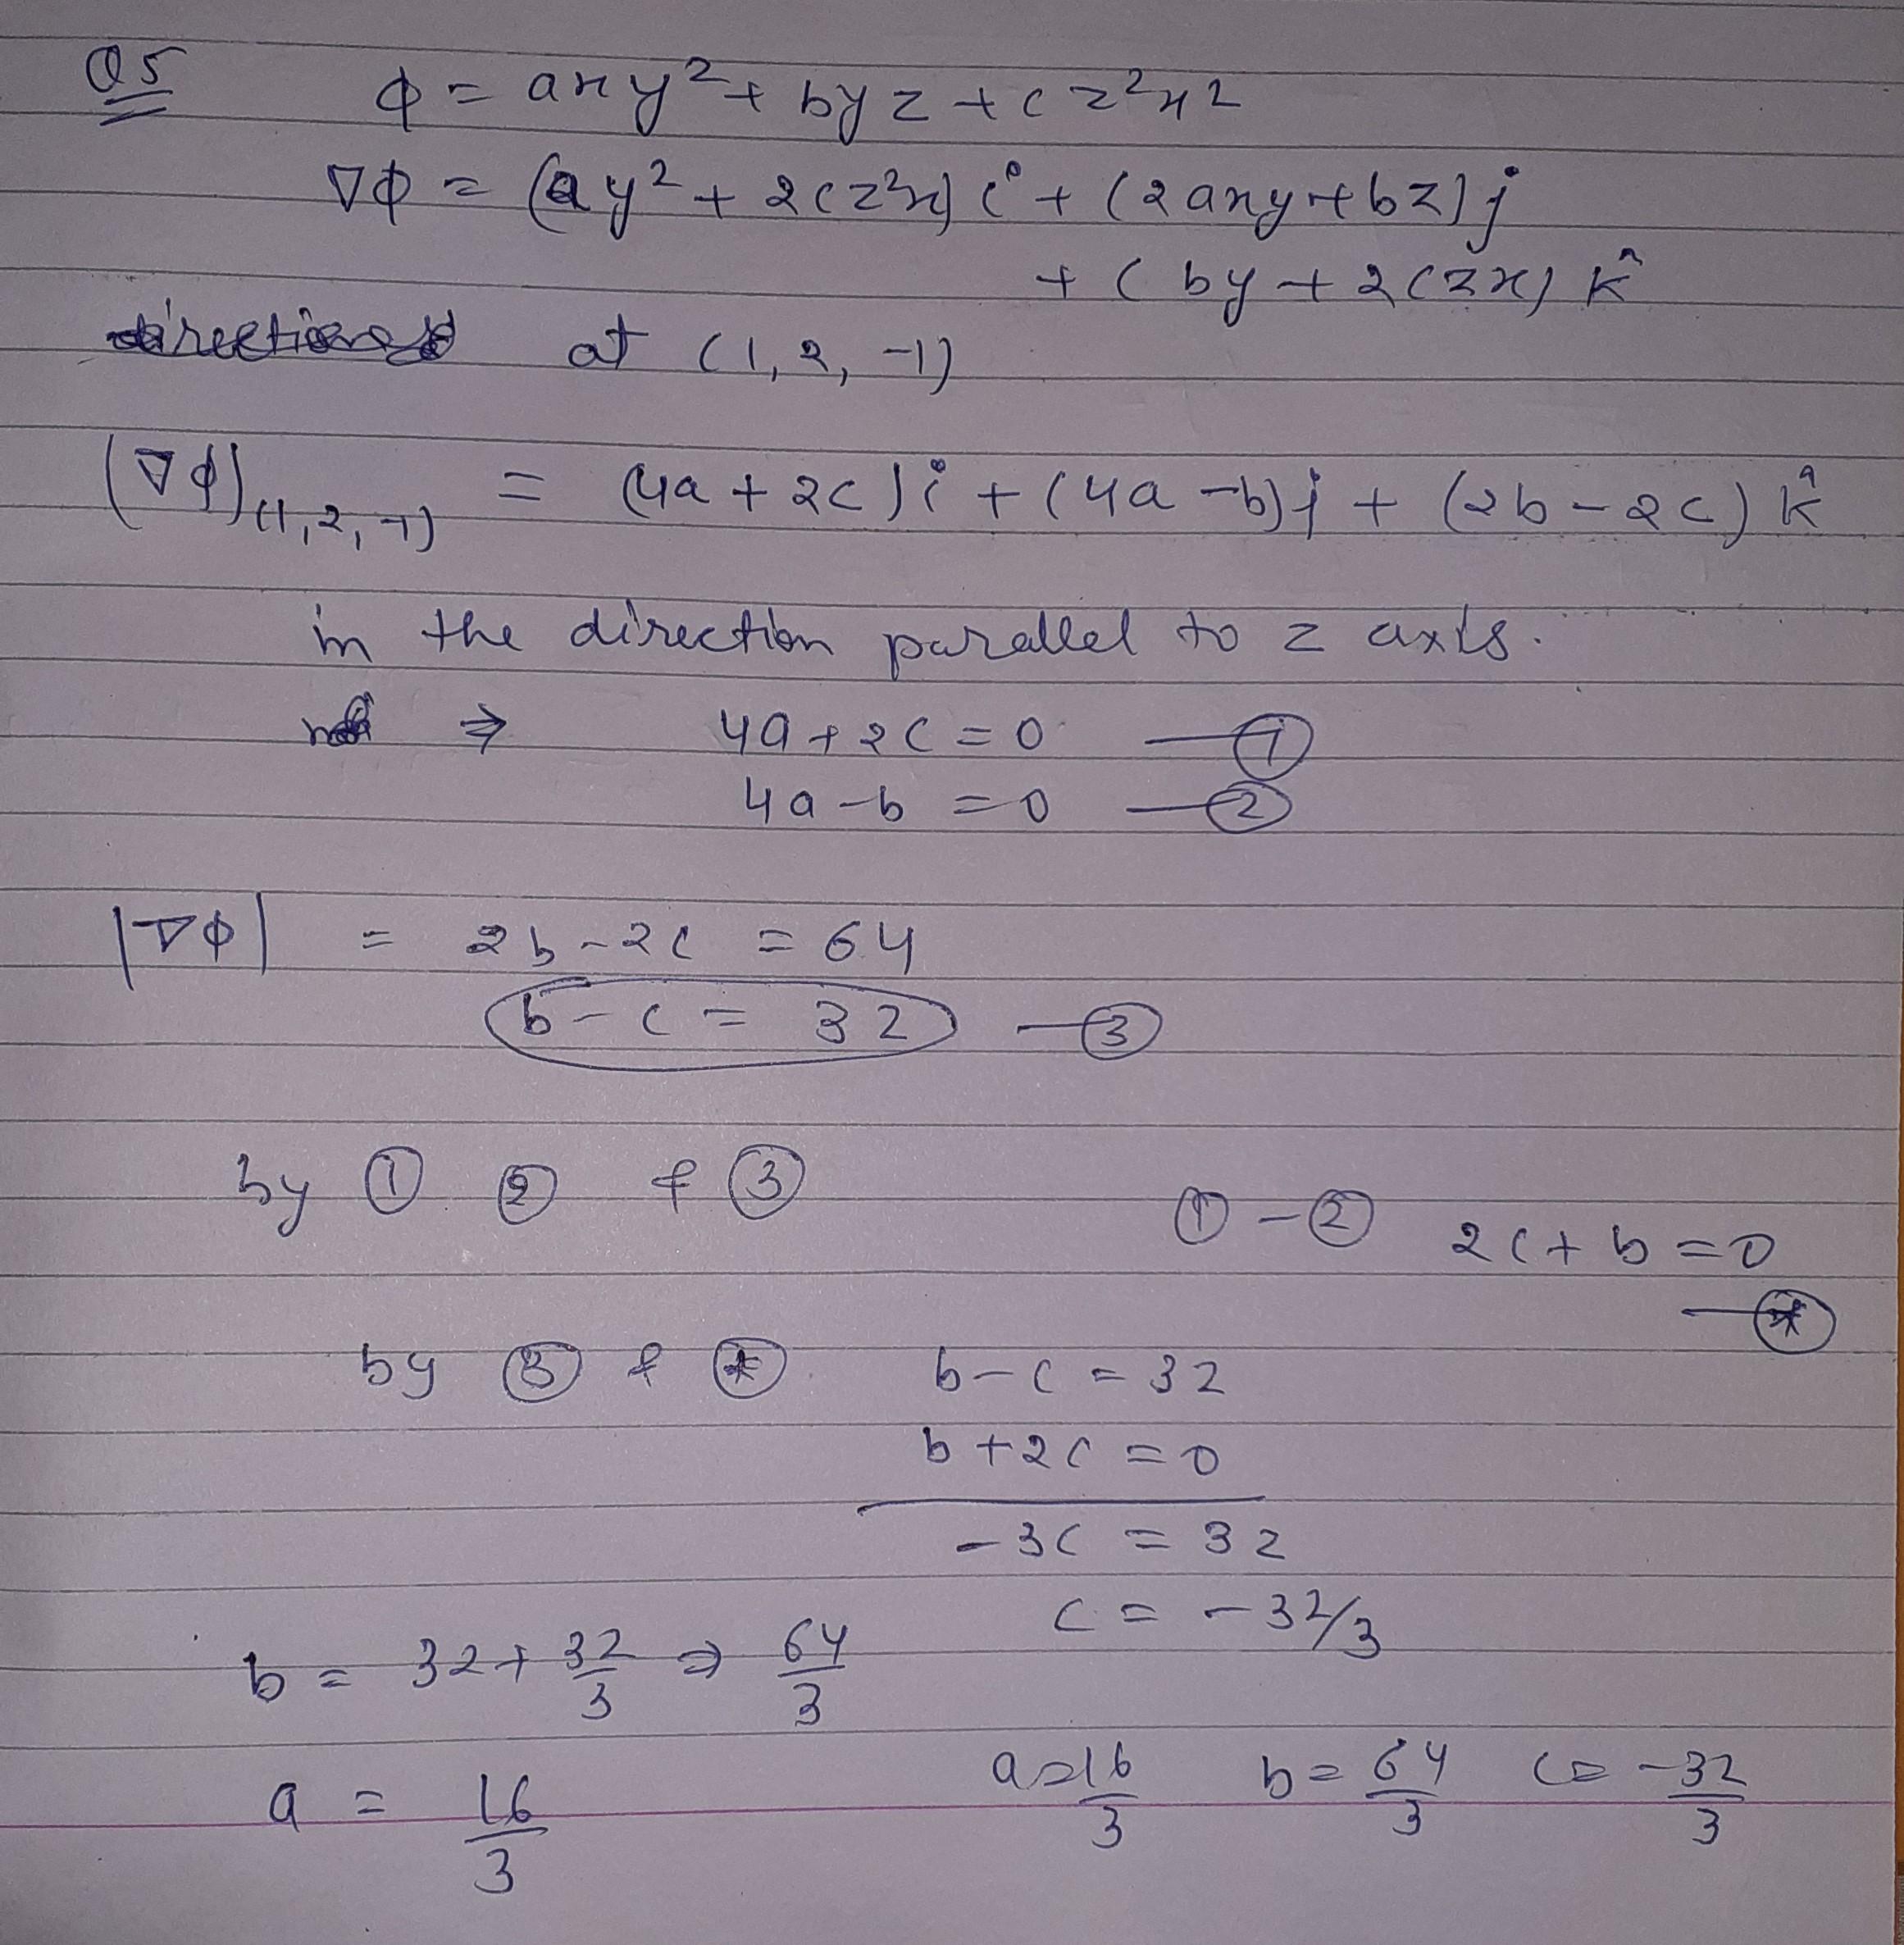 Q5 φ = axy² + byz + cz²x²
∇φ = (ay² + 2cz²x) i + (2axy + bz) j
+ (by + 2czx) k̂
at (1, 2, -1)
(∇φ)(1, 2, -1) = (4a + 2c) i + (4a - b) j + (2b - 2c) k̂
in the direction parallel to z axis.
⇒ 4a + 2c = 0 — ①
4a - b = 0 — ②
|∇φ| = 2b - 2c = 64
b - c = 32 — ③
by ① ② & ③
① - ② 2c + b = 0
— ⊛
by ③ & ⊛ b - c = 32
b + 2c = 0
-3c = 32
c = -32/3
b = 32 + 32/3 ⇒ 64/3
a = 16/3
a = 16/3 b = 64/3 c = -32/3